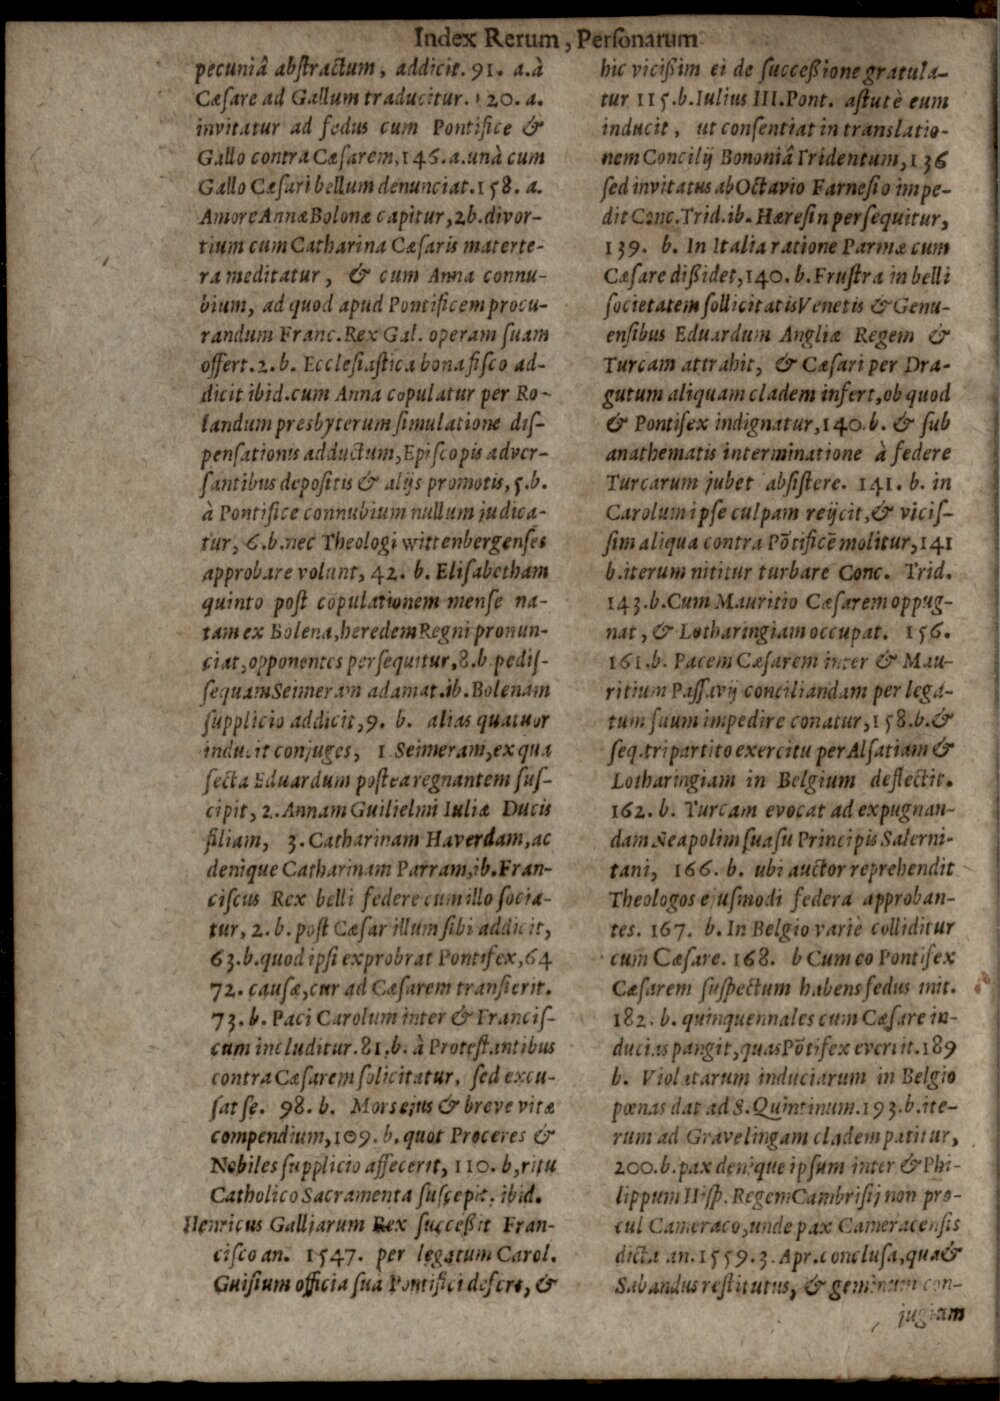 Index Rerum, Personarum
pecuniâ abstractum, addicit. 91. a. à
Cæsare ad Gallum traducitur. 120. a.
invitatur ad fedus cum Pontifice &
Gallo contra Cæsarem, 146. a. unà cum
Gallo Cæsari bellum denunciat. 158. a.
Amore Annæ Bolonæ capitur, 2b. divor-
tium cum Catharina Cæsaris materte-
ra meditatur, & cum Anna connu-
bium, ad quod apud Pontificem procu-
randum Franc. Rex Gal. operam suam
offert. 2. b. Ecclesiastica bona fisco ad-
dicit ibid. cum Anna copulatur per Ro-
landum presbyterum simulatione dis-
pensationis adductum, Episcopis adver-
santibus depositis & alijs promotis, 5. b.
à Pontifice connubium nullum judica-
tur, 6. b. nec Theologi wittenbergenses
approbare volunt, 42. b. Elisabetham
quinto post copulationem mense na-
tam ex Bolena, heredem Regni pronun-
ciat, opponentes persequitur, 8. b pedis-
sequam Seimeram adamat. ib. Bolenam
supplicio addicit, 9. b. alias quatuor
inducit conjuges, 1 Seimeram, ex qua
secta Eduardum postea regnantem sus-
cipit, 2. Annam Guilielmi Iuliæ Ducis
filiam, 3. Catharinam Haverdam, ac
denique Catharinam Parram, ib. Fran-
ciscus Rex belli federe cum illo socia-
tur, 2. b. post Cæsar illum sibi addicit,
63. b. quod ipsi exprobrat Pontifex, 64
72. causæ, cur ad Cæsarem transierit.
73. b. Paci Carolum inter & Francis-
cum includitur. 81. b. à Protestantibus
contra Cæsarem solicitatur, sed excu-
sat se. 98. b. Mors ejus & breve vitæ
compendium, 109. b. quot Proceres &
Nobiles supplicio affecerit, 110. b, ritu
Catholico Sacramenta suscepit. ibid.
Henricus Galliarum Rex successit Fran-
cisco an. 1547. per legatum Carol.
Guisium officia sua Pontifici defert, &
hic vicißim ei de succeßione gratula-
tur 115. b. Iulius III. Pont. astutè eum
inducit, ut consentiat in translatio-
nem Concilij Bononiâ Tridentum, 136
sed invitatus ab Octavio Farnesio impe-
dit Conc. Trid. ib. Hæresin persequitur,
139. b. In Italia ratione Parmæ cum
Cæsare dißidet, 140. b. Frustra in belli
societatem sollicitatis Venetis & Genu-
ensibus Eduardum Angliæ Regem &
Turcam attrahit, & Cæsari per Dra-
gutum aliquam cladem infert, ob quod
& Pontifex indignatur, 140. b. & sub
anathematis interminatione à federe
Turcarum jubet absistere. 141. b. in
Carolum ipse culpam reijcit, & vicis-
sim aliqua contra Põtificẽ molitur, 141
b. iterum nititur turbare Conc. Trid.
143. b. Cum Mauritio Cæsarem oppug-
nat, & Lotharingiam occupat. 156.
161. b. Pacem Cæsarem inter & Mau-
ritium Passavij conciliandam per lega-
tum suum impedire conatur, 158. b. &
seq. tripartito exercitu per Alsatiam &
Lotharingiam in Belgium deflectit.
162. b. Turcam evocat ad expugnan-
dam Neapolim suasu Principis Salerni-
tani, 166. b. ubi auctor reprehendit
Theologos ejusmodi federa approban-
tes. 167. b. In Belgio variè colliditur
cum Cæsare. 168. b Cum eo Pontifex
Cæsarem suspectum habens fedus init.
182. b. quinquennales cum Cæsare in-
ducias pangit, quas Põtifex evertit. 189
b. Violatarum induciarum in Belgio
pœnas dat ad S. Quintinum. 193. b. ite-
rum ad Gravelingam cladem patitur,
200. b. pax denique ipsum inter & Phi-
lippum Hisp. Regem Cambrisij non pro-
cul Cameraco, unde pax Cameracensis
dicta an. 1559. 3. Apr. conclusa, qua &
Sabandus restitutus, & geminum con-
jugiam